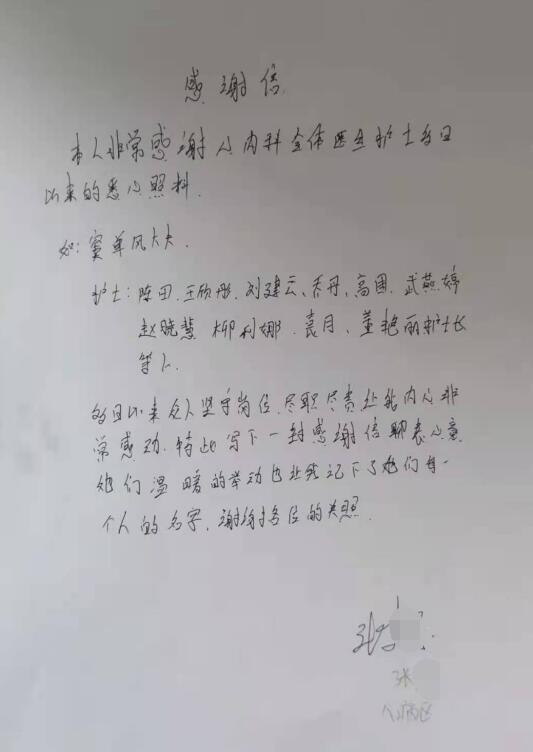 感谢信
本人非常感谢心内科全体医生护士多日
以来的悉心照料.
如:窦单风大夫.
护士:陈田.王欣彤.刘建云、乔丹、高围.武燕婷
赵晓慧 柳利娜.袁月、董艳丽护士长
等人.
多日以来众人坚守岗位.尽职尽责让我内心非
常感动.特此写下一封感谢信聊表心意
她们温暖的举动也让我记下了她们每一
个人的名字.谢谢各位的关照.
张
张
心病区